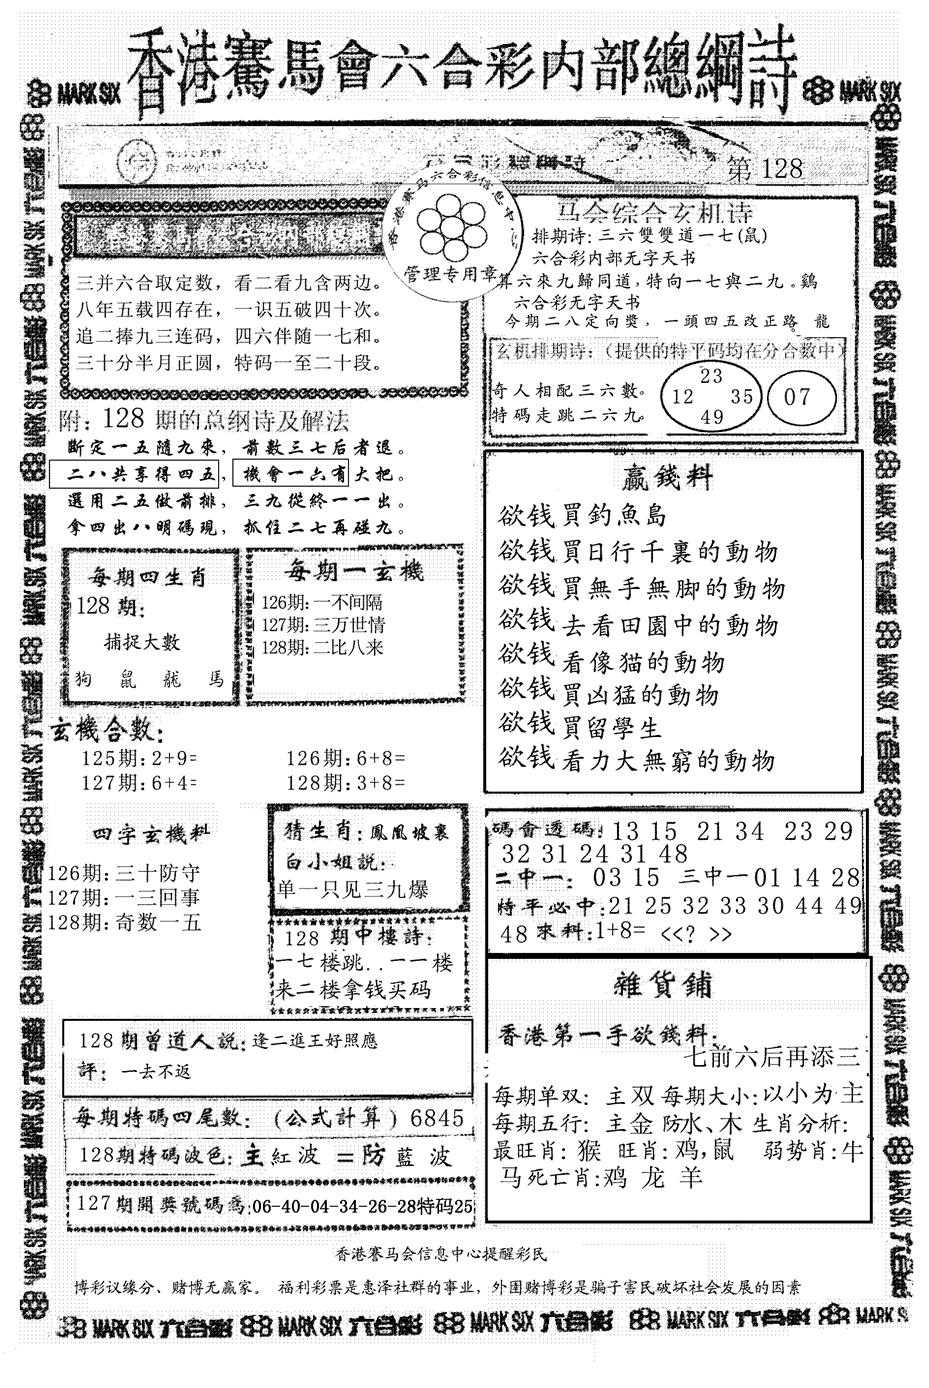 香港賽馬會六合彩内部總綱詩
MARK SIX
MARK SIX
第 128
香港赛马六合彩信息中
管理专用章
三并六合取定数，看二看九含两边。
八年五载四存在，一识五破四十次。
追二捧九三连码，四六伴随一七和。
三十分半月正圆，特码一至二十段。
马会综合玄机诗
排期诗: 三六雙雙道一七(鼠)
六合彩内部无字天书
算六來九歸同道, 特向一七與二九。鷄
六合彩无字天书
今期二八定向獎，一頭四五改正路 龍
玄机排期诗:（提供的特平码均在分合数中）
奇人相配三六數。
特碼走跳二六九。
23
12 35
49
07
附: 128 期的总纲诗及解法
斷定一五隨九來，前數三七后者退。
二八共享得四五，機會一六有大把。
選用二五做前排，三九從終一一出。
拿四出八明碼現，抓住二七再碰九。
每期四生肖
128 期:
捕捉大數
狗 鼠 龍 馬
每期一玄機
126期: 一不间隔
127期: 三万世情
128期: 二比八来
赢錢料
欲钱買釣魚島
欲钱買日行千裏的動物
欲钱買無手無脚的動物
欲钱去看田園中的動物
欲钱看像猫的動物
欲钱買凶猛的動物
欲钱買留學生
欲钱看力大無窮的動物
玄機合數:
125期: 2+9= 126期: 6+8=
127期: 6+4= 128期: 3+8=
四字玄機料
126期: 三十防守
127期: 一三回事
128期: 奇数一五
猜生肖: 鳳凰坡裏
白小姐説:
单一只见三九爆
128 期中樓詩:
一七楼跳..一一楼
来二楼拿钱买码
碼會透碼: 13 15 21 34 23 29
32 31 24 31 48
二中一: 03 15 三中一 01 14 28
特平必中: 21 25 32 33 30 44 49
48 來料: 1+8= <<? >>
128期曾道人説: 逢二進王好照應
評: 一去不返
每期特碼四尾數:（公式計算）6845
128期特碼波色: 主紅波 =防藍波
127期開獎號碼爲:06-40-04-34-26-28特码25
雜貨鋪
香港第一手欲錢料:
七前六后再添三
每期单双: 主双 每期大小: 以小为主
每期五行: 主金防水、木 生肖分析:
最旺肖: 猴 旺肖: 鸡, 鼠 弱势肖: 牛
马 死亡肖: 鸡 龙 羊
香港赛马会信息中心提醒彩民
博彩议缘分、赌博无赢家。 福利彩票是惠泽社群的事业，外围赌博彩是骗子害民破坏社会发展的因素
MARK SIX 六合彩 MARK SIX 六合彩 MARK SIX 六合彩 MARK SIX 六合彩 MARK SIX